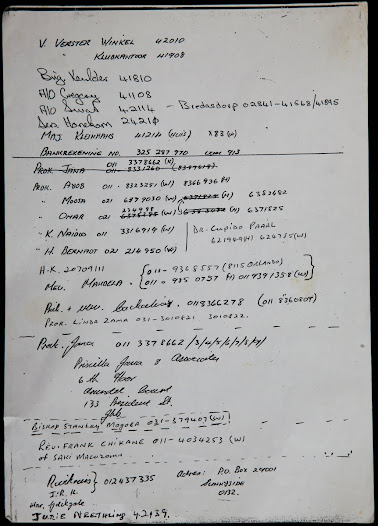 V. VERSTER WINKEL 42010
" KLUBKANTOOR 41908
Brig Keulder 41810
A/O Gregory 41108
A/O Swart 42114 - Bredasdorp 02841-41568/41895
Sers. 24210
MAJ. KLEINHANS 41214 (HUIS) X83 (W)
BANKREKENING NO. 325 287 770 913
PROK. JANA 011 3378662 (W)
011 - 8331260
PROK. AYOB 011 - 8323251 (W) 8366936 (H)
" MOOSA 021 6379030 (W) (H) 6352682
" OMAR 022 (H) 6371525
" K. NAIDOO 011 3316919 (W)
" H. BERNADT 021 214950 (W)
DR. CUPIDO PAARL
621989(H) 624715(W)
H-K. 20709111
MEV. MANDELA. 011 - 9368557 (8115 ORLANDO)
011 - 935 0757 (H) 011 9391358 (W)
Prok. + mev. 011 8366278 (011 8360807)
PROF. LINDA ZAMA 031-3010821 3010822.
Prok. Jana 011 3378662 /3/4/5/6/7/8/9/
Priscilla Jana & Associates
6 th Floor
Court
133 President St.
Jhb
BISHOP STANLEY MOGOBA 031-379407 (W)
REV. FRANK CHIKANE 011-4034253 (W)
of SAKI MACOZOMA
012437335
Adres: P.O. Box 27001
SUNNYSIDE
0132.
J.R.K.
JUZIE NEETHLING 42139.